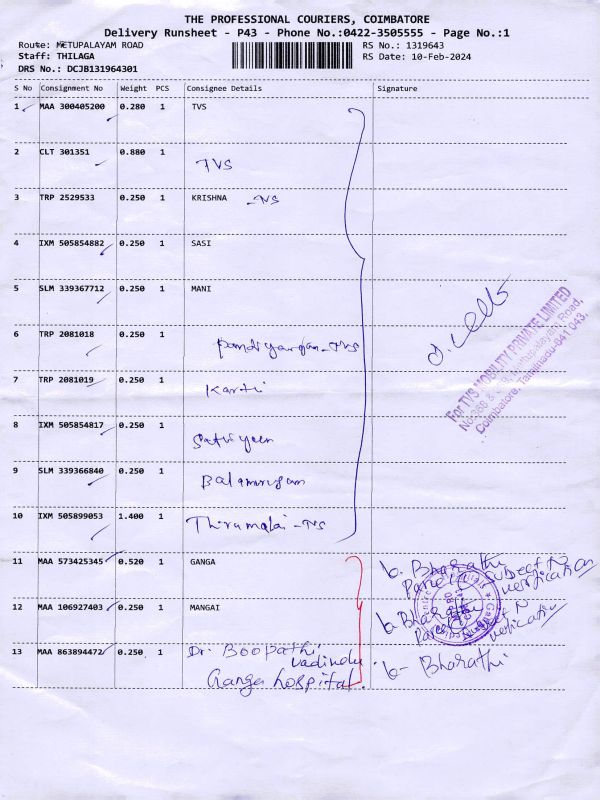 THE PROFESSIONAL COURIERS, COIMBATORE
Delivery Runsheet - P43 - Phone No.:0422-3505555 - Page No.:1
Route: METUPALAYAM ROAD
Staff: THILAGA
DRS No.: DCJB131964301
RS No.: 1319643
RS Date: 10-Feb-2024
S No Consignment No Weight PCS Consignee Details Signature
1 MAA 300405200 0.280 1 TVS
2 CLT 301351 0.880 1 TVS
3 TRP 2529533 0.250 1 KRISHNA -TVS
4 IXM 505854882 0.250 1 SASI
5 SLM 339367712 0.250 1 MANI
6 TRP 2081018 0.250 1 -TVS
7 TRP 2081019 0.250 1 Karti
8 IXM 505854817 0.250 1
9 SLM 339366840 0.250 1 Balamurugan
10 IXM 505899053 1.400 1 Thirumalai -TVS
For TVS MOBILITY PRIVATE LIMITED
Coimbatore, Tamilnadu-641 043.
11 MAA 573425345 0.520 1 GANGA b. Bharathi
Parcel Subject to
verification
12 MAA 106927403 0.250 1 MANGAI b Bharathi
verification
13 MAA 863894472 0.250 1 Dr. Boopathi b- Bharathi
Ganga hospital.